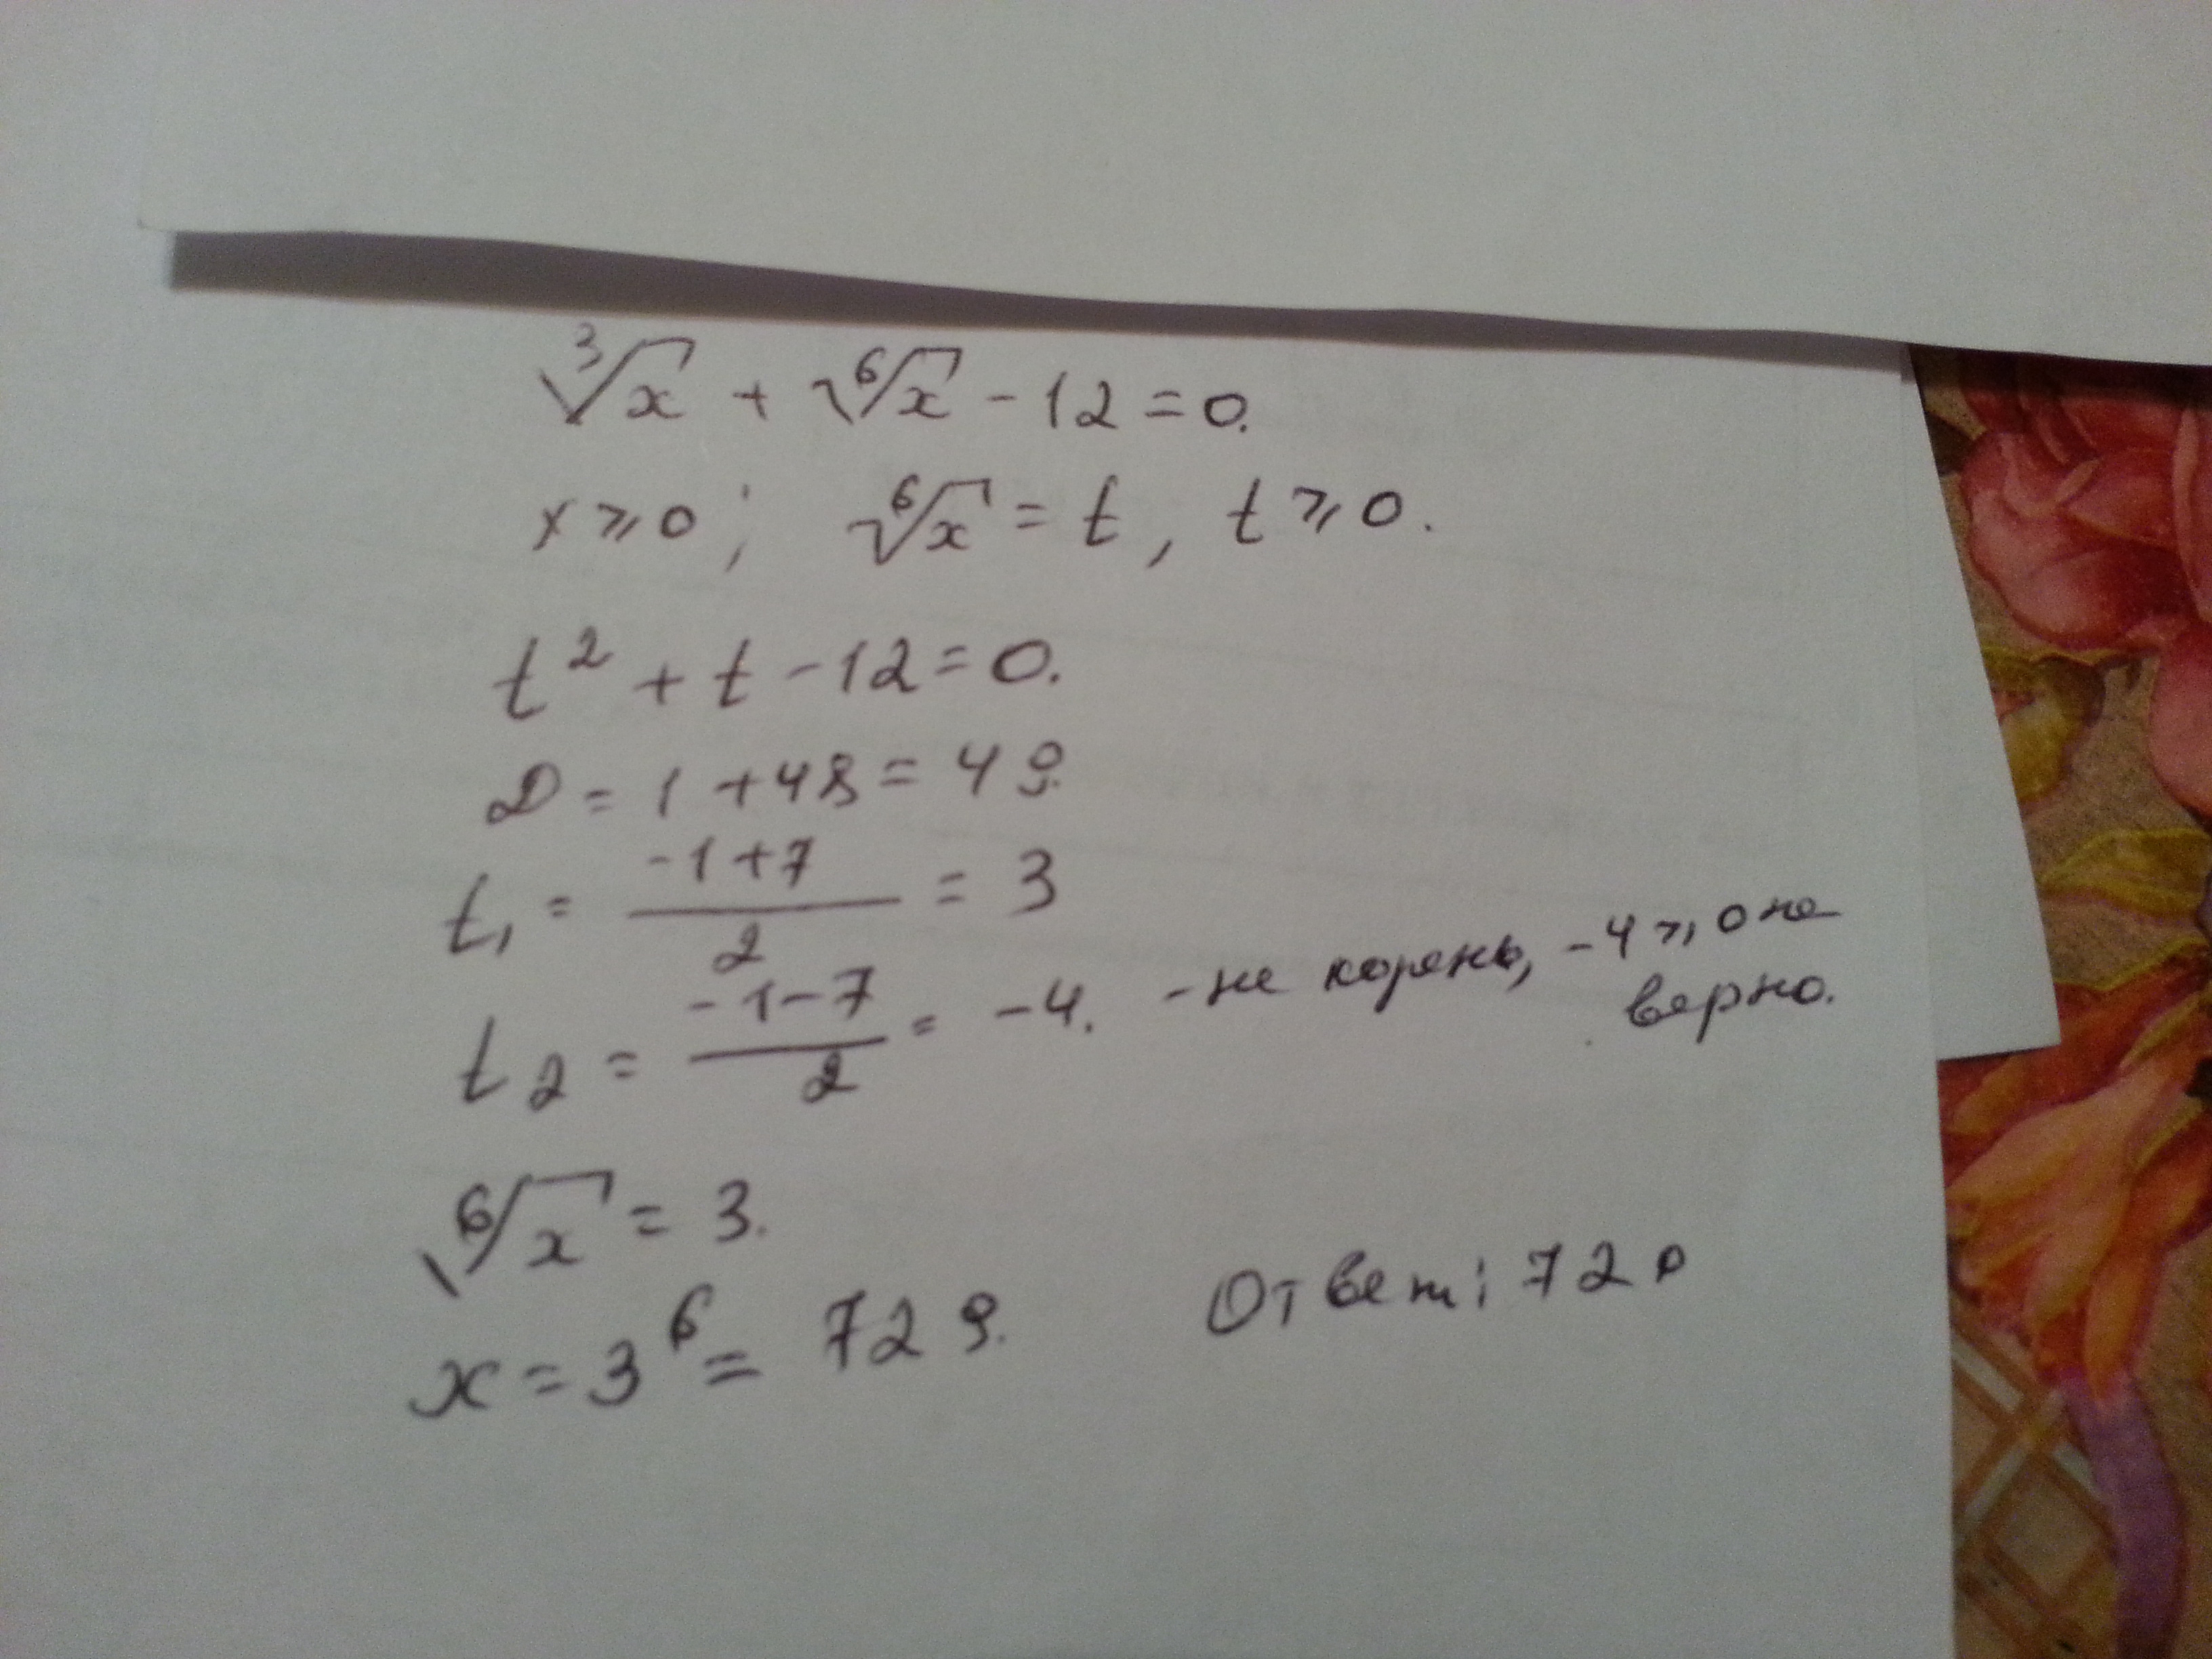 ∛x + ⁶√x - 12 = 0.
x ⩾ 0; ⁶√x = t, t ⩾ 0.
t² + t - 12 = 0.
D = 1 + 48 = 49.
t₁ = (-1+7)/2 = 3
t₂ = (-1-7)/2 = -4. - не корень, -4 ⩾ 0 не
верно.
⁶√x = 3.
x = 3⁶ = 729. Ответ: 729